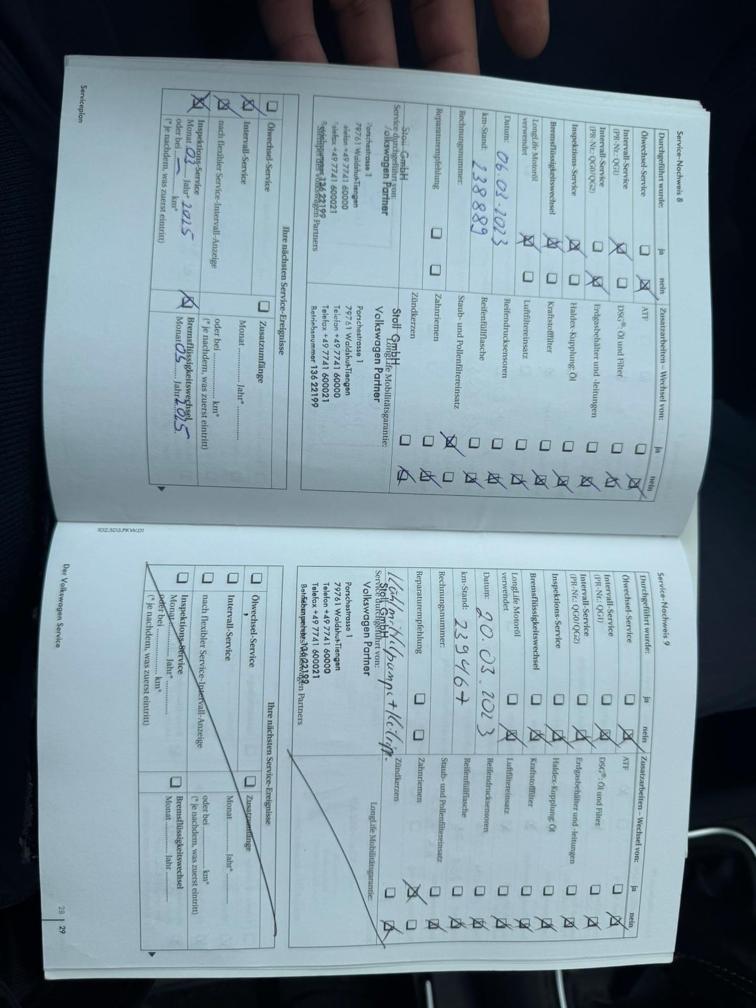 Service-Nachweis 8
Durchgeführt wurde: ja nein
Ölwechsel-Service
Intervall-Service
(PR-Nr.: QG1)
Intervall-Service
(PR-Nr.: QG0/QG2)
Inspektions-Service
Bremsflüssigkeitswechsel
LongLife Motoröl
verwendet
Datum: 06.03.2023
km-Stand: 238889
Rechnungsnummer:
Reparaturempfehlung
Service durchgeführt von:
Stoll GmbH
Volkswagen Partner
Porschestrasse 1
79761 Waldshut-Tiengen
Telefon +49 7741 60000
Telefax +49 7741 600021
Betriebsnummer 136 22199
Zusatzarbeiten – Wechsel von: ja nein
ATF
DSG®: Öl und Filter
Erdgasbehälter und -leitungen
Haldex-Kupplung: Öl
Kraftstofffilter
Luftfiltereinsatz
Reifendrucksensoren
Reifenfüllflasche
Staub- und Pollenfiltereinsatz
Zahnriemen
Zündkerzen
LongLife Mobilitätsgarantie:
Stoll GmbH
Volkswagen Partner
Porschestrasse 1
79761 Waldshut-Tiengen
Telefon +49 7741 60000
Telefax +49 7741 600021
Betriebsnummer 136 22199
Ihre nächsten Service-Ereignisse
Ölwechsel-Service
Intervall-Service
nach flexibler Service-Intervall-Anzeige
Inspektions-Service
Monat 03 Jahr* 2025
oder bei — km*
(* je nachdem, was zuerst eintritt)
Zusatzumfänge
Monat Jahr*
oder bei km*
(* je nachdem, was zuerst eintritt)
Bremsflüssigkeitswechsel
Monat 03 Jahr 2025
Serviceplan
Service-Nachweis 9
Durchgeführt wurde: ja nein
Ölwechsel-Service
Intervall-Service
(PR-Nr.: QG1)
Intervall-Service
(PR-Nr.: QG0/QG2)
Inspektions-Service
Bremsflüssigkeitswechsel
LongLife Motoröl
verwendet
Datum: 20.03.2023
km-Stand: 239467
Rechnungsnummer:
Reparaturempfehlung
Service durchgeführt von:
Stoll GmbH
Volkswagen Partner
Porschestrasse 1
79761 Waldshut-Tiengen
Telefon +49 7741 60000
Telefax +49 7741 600021
Betriebsnummer 136 22199
Zusatzarbeiten – Wechsel von: ja nein
ATF
DSG®: Öl und Filter
Erdgasbehälter und -leitungen
Haldex-Kupplung: Öl
Kraftstofffilter
Luftfiltereinsatz
Reifendrucksensoren
Reifenfüllflasche
Staub- und Pollenfiltereinsatz
Zahnriemen
Zündkerzen
LongLife Mobilitätsgarantie:
Ihre nächsten Service-Ereignisse
Ölwechsel-Service
Intervall-Service
nach flexibler Service-Intervall-Anzeige
Inspektions-Service
Monat Jahr*
oder bei km*
(* je nachdem, was zuerst eintritt)
Zusatzumfänge
Monat Jahr*
oder bei km*
(* je nachdem, was zuerst eintritt)
Bremsflüssigkeitswechsel
Monat Jahr
Der Volkswagen Service
28 | 29